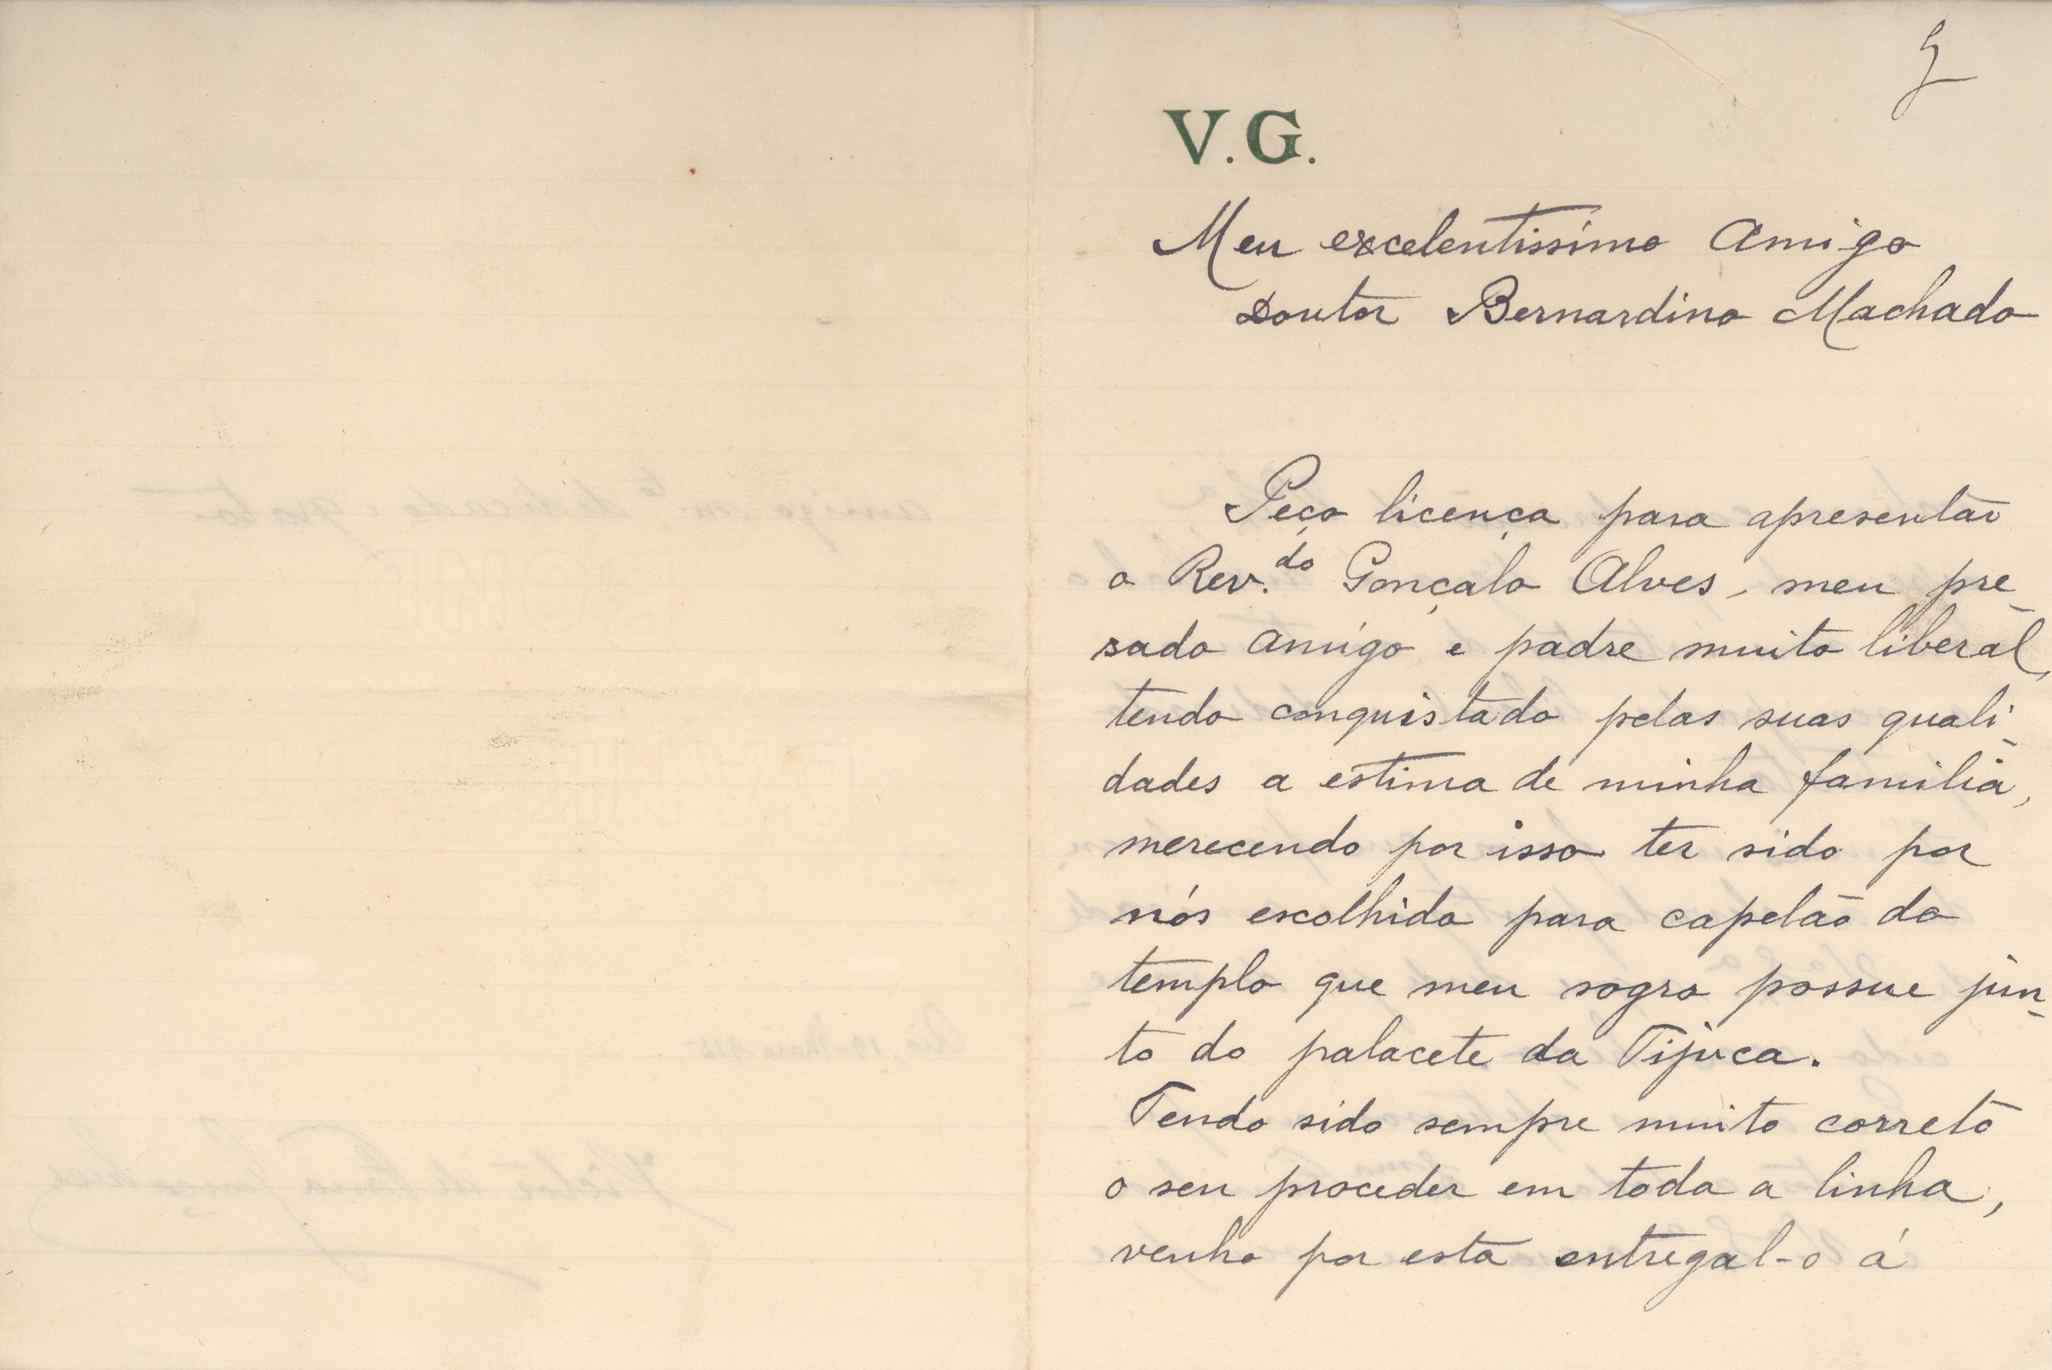 V.G.
Meu excelentissimo Amigo
Doutor Bernardino Machado
Peço licença para apresentar
o Rev.do Gonçalo Alves, meu pre-
sado amigo e padre muito liberal,
tendo conquistado pelas suas quali-
dades a estima de minha familia,
merecendo por isso ter sido por
nós escolhido para capelão do
templo que meu sogro possue jun-
to do palacete da Tijuca.
Tendo sido sempre muito correto
o seu proceder em toda a linha,
venho por esta entregal-o á